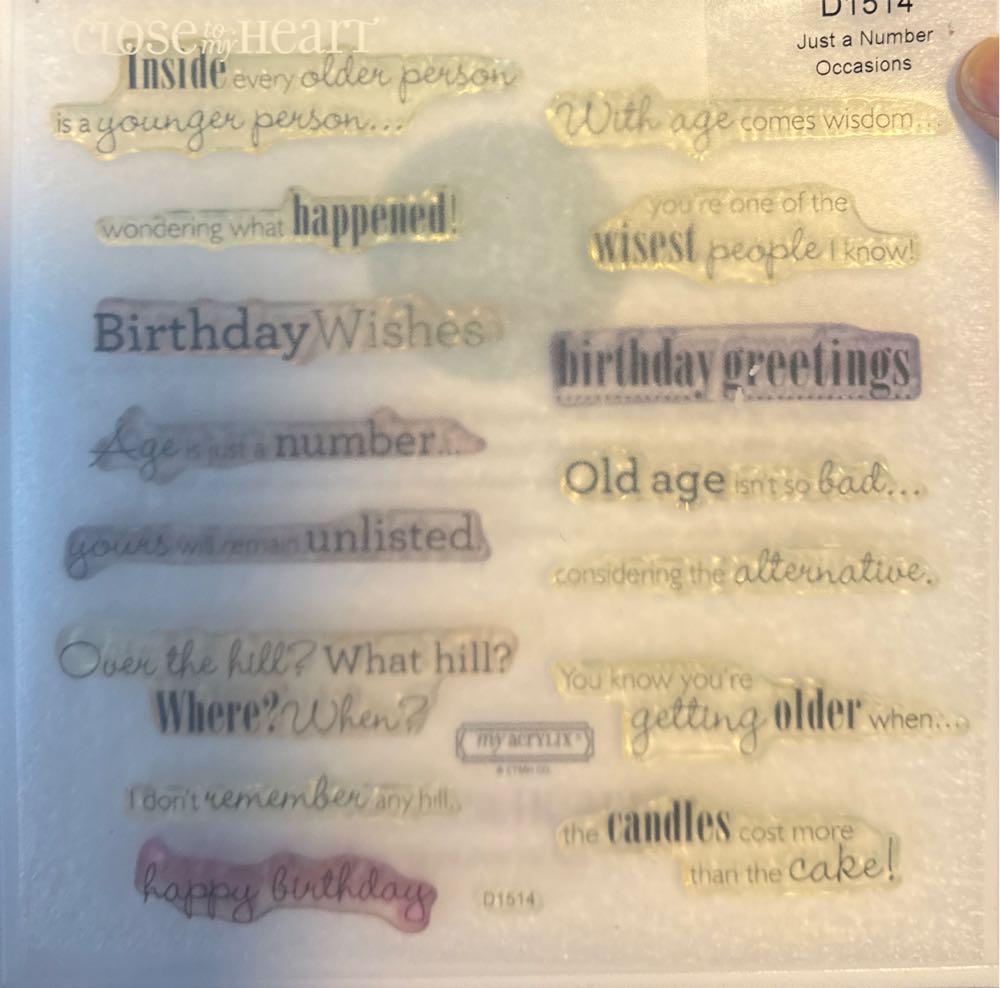 CLOSE to my HEART
D1514
Just a Number
Occasions
Inside every older person
is a younger person...
wondering what happened!
Birthday Wishes
Age is just a number...
yours will remain unlisted.
Over the hill? What hill?
Where? When?
I don't remember any hill.
happy birthday
With age comes wisdom...
you're one of the
wisest people I know!
birthday greetings
Old age isn't so bad...
considering the alternative.
You know you're
getting older when...
the candles cost more
than the cake!
my acrylix®
© CTMH CO.
D1514